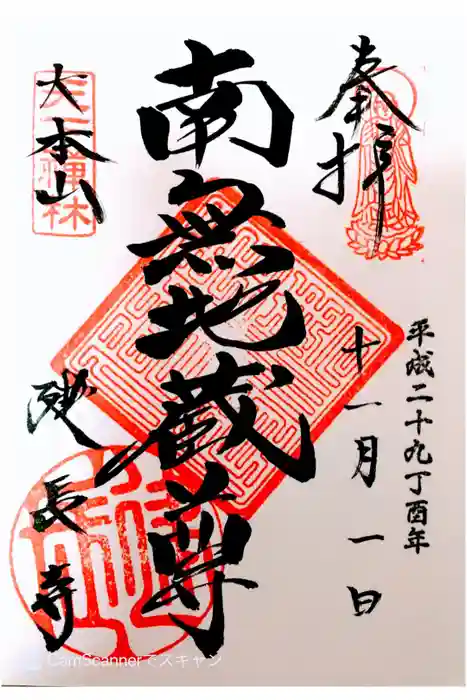 奉拝
平成二十九丁酉年
十一月一日
南無地蔵尊
大本山
建長寺
天下禅林
CamScannerでスキャン